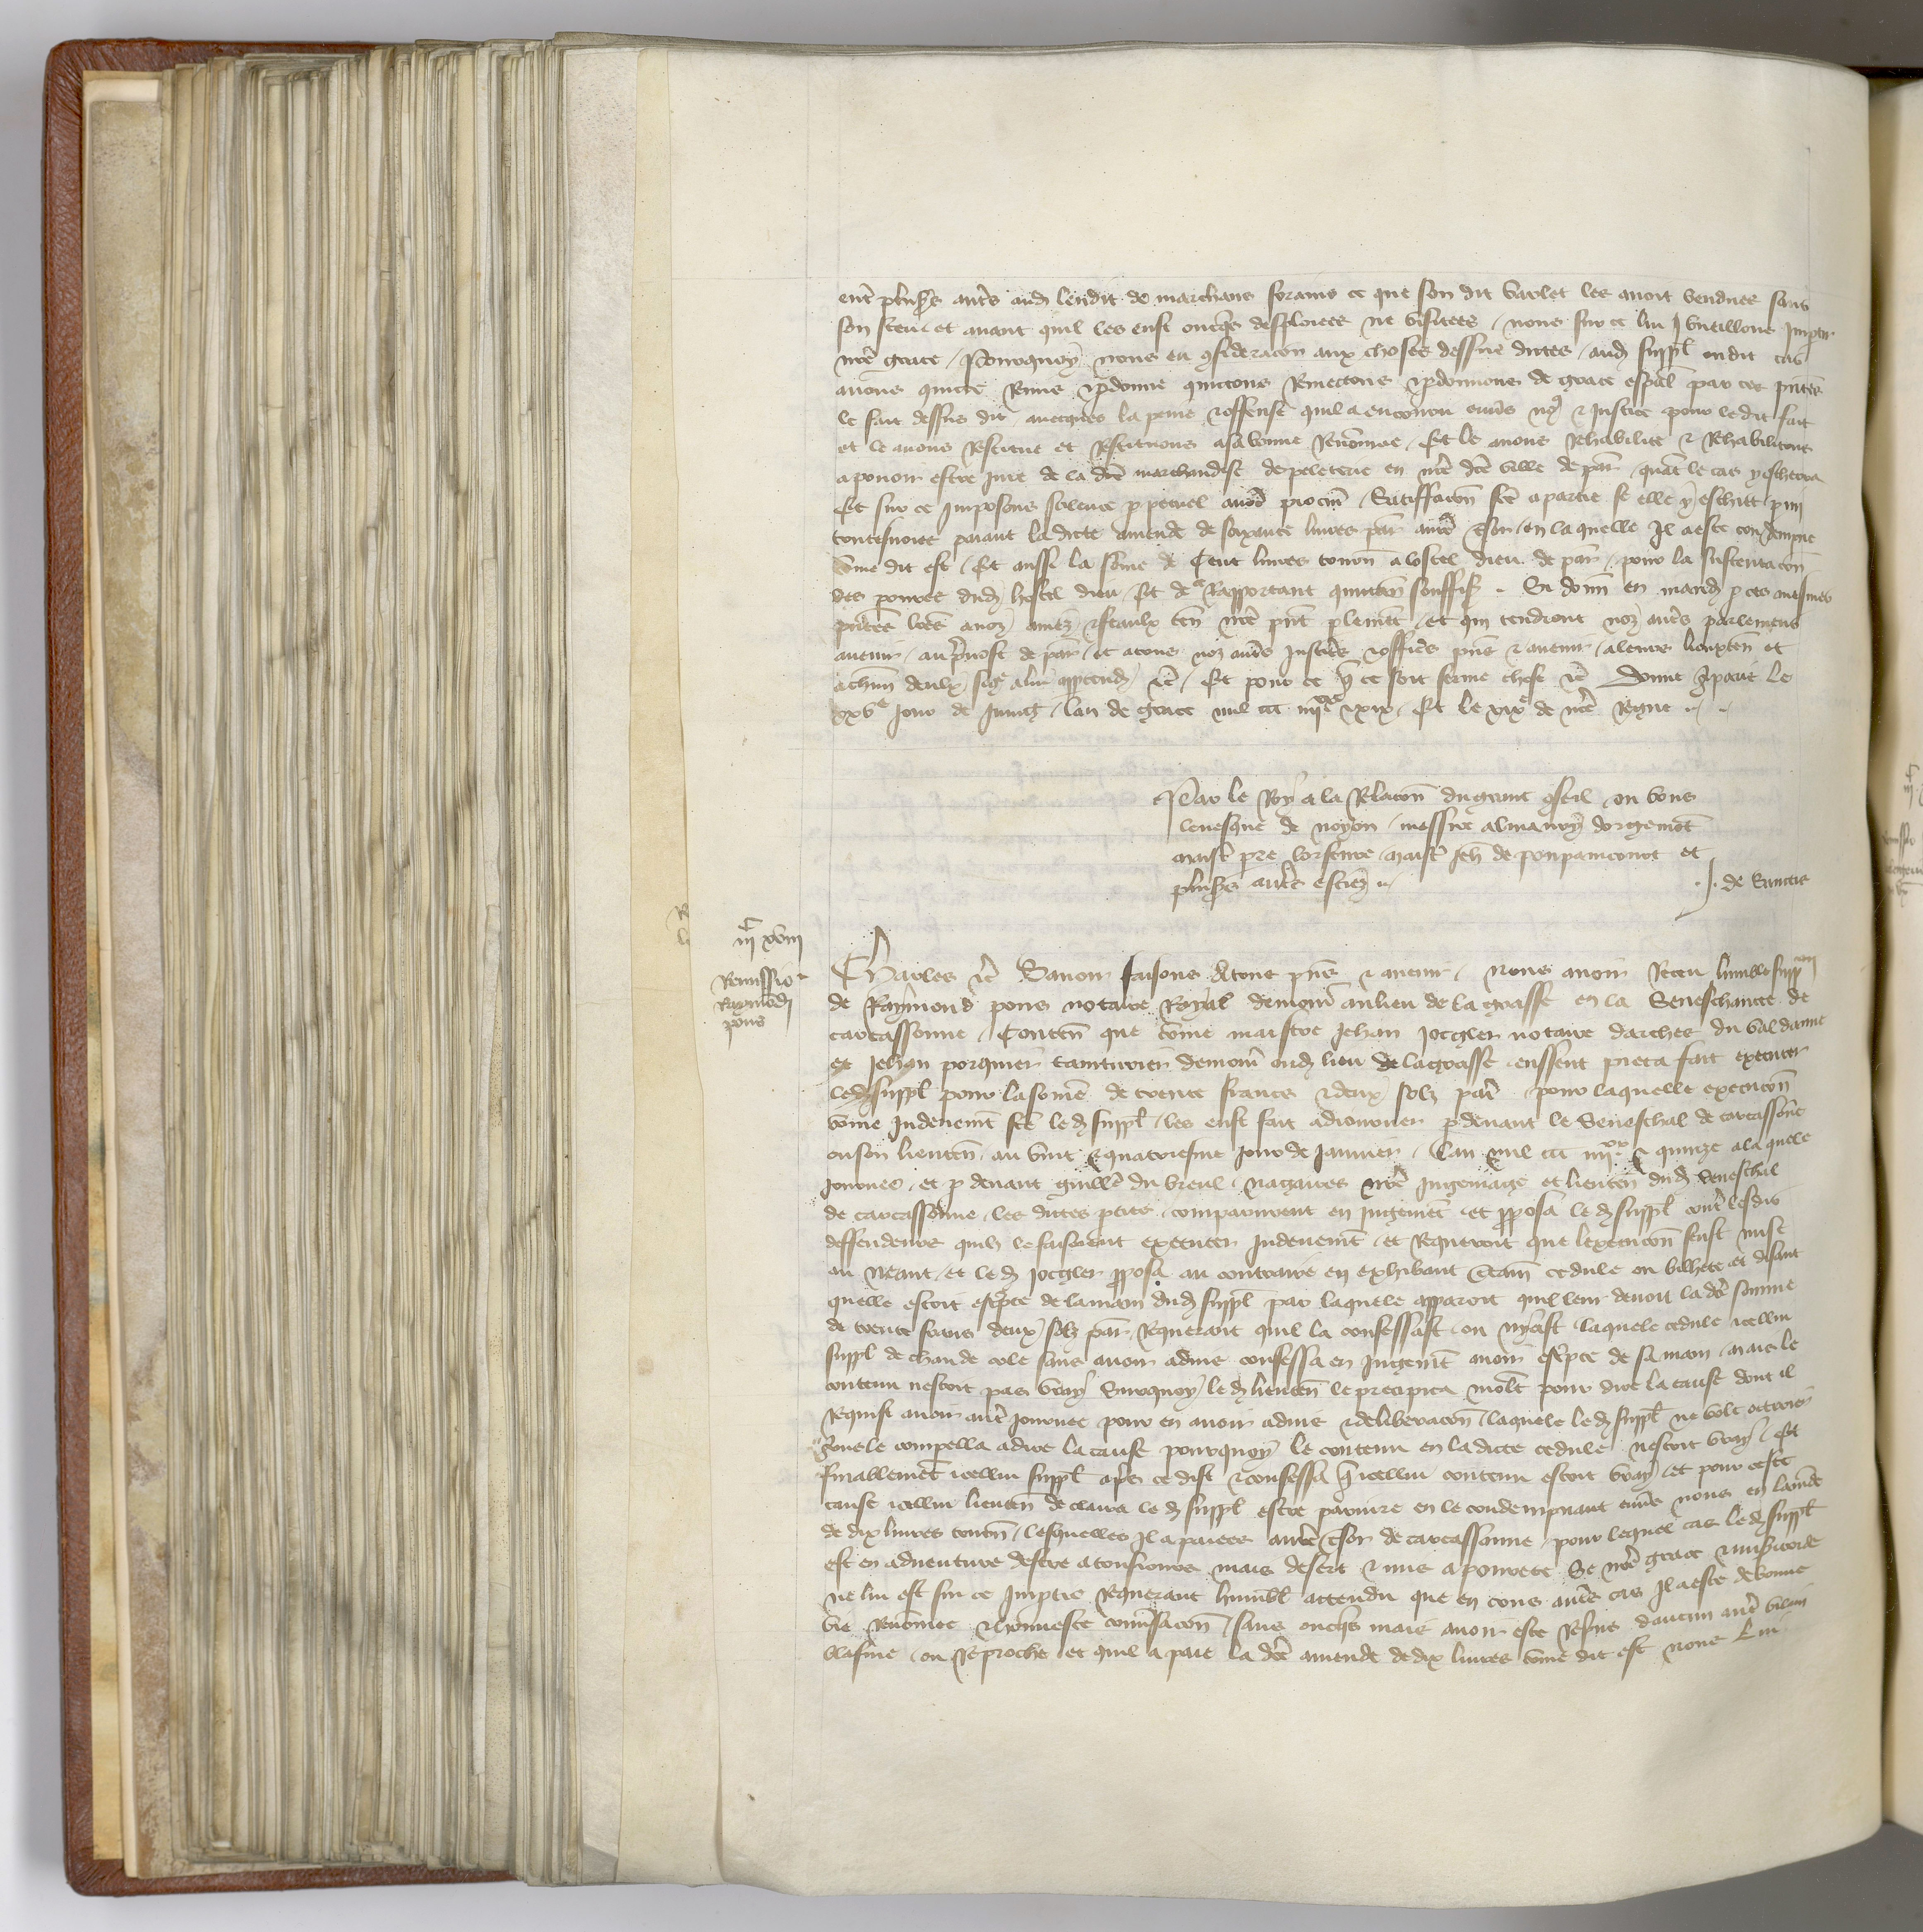 ent plus's aut's aud lendit de marchans forains ce que son dit varlet les avoit vendues sans
son sceu et avant quil les eust oncq's desploiees ne visitees / nous sur ce lui vueillons impar
n're grace / Pourquoy nous en 9sideracon aux choses dessus dictes / aud suppl ou dit cas
avons quicte remis & p'donne quictons remectons & p'donnons de grace esp'al par ces p'ntes
le fait dessus dit avecques la peine & offense quil a encouru envers no' & justice pour le dit fait
et le avons restitue et restituons a sa bonne renommee Et le avons rehabilite & rehabilitons
a pouoir estre jure de la d'te marchandise de peleterie en n're d'te ville de par quat le cas y escherra
Et sur ce imposons silence p petuel a n're procur Satisffacon f'te a partie se elle y eschiet p mi
toutesvoies paiant la dicte amende de soixante livres par a n're t'sor en laquelle il a este condempne
come dit est / Et aussi la some de Cent livres tourn a lostel dieu de par pour la sustentacon
des povres dud hostel dieu Et de ce rapportant quittan souffis Si donn en mand p ces mesmes
p'ntes l'res a noz amez & feaulx gen n're p'nt parlemt et qui tendront noz aut's parlemens
avenir au prevost de par et a tous noz aut's justic's & offic's p'ns & avenir a leurs lieuxten et
a chun deulx sicõe a lui appartendr &c Et pour ce q ce soit ferme chose &c Donne a paris le
xxve jour de juing / lan de grace mil ccc iiiixx & xix Et le xixe de n're regne
Par le Roy a la relacon du grant 9seil ou vous
levesque de noyon messire almaury dorgemot
maist pre boischue maist jeh de poupaincourt et
plus's aut's estiez
J. de Sanctis
iiic xviii
Remissio
Raymondi
pons
Charles &c Savoir faisons A tous p'ns & avenir / Nous avoir receu lumble supplicacon
de Raymond pons notaire royal demour au lieu de la grasse en la Seneschaucie de
carcassonne / Conten que come maistre jehan jocgler notaire darches du val danne
et jehan porquier tainturier demour oud lieu de la grasse eussent pieca fait executer
led suppl pour la some de trente francs & deux solz par pour laquelle execucon
come indeuemt f'te led suppl les eust fait adiourner p devant le Seneschal de carcassone
ou son lieuten au vint & quatriesme jour de janvier Lan mil ccc iiiixx & quinze a laquele
journee et p devant guill'e du breuil nagaires n're jugemage et lieuten dud Seneschal
de carcassonne les dictes p'ties comparurent en jugemt et pposa led suppl cont' lesdis
deffendeurs quilz le faisoient executer indeuemt et requeroit que lexecucon feust mise
au neant et led jocgler pposa au contraire en exhibant c'tain cedule ou bilhete et disant
quelle estoit esc'pte de la main dud suppl par laquele apparoit quil leur devoit la d'te somme
de trente frans deux solz par requerant quil la confessast ou nyast laquele cedule icellui
suppl de chaude cole sans avoir advis confessa en jugemt avoir esc'pte de sa main mais le
contenu nestoit pas vray Surquoy led lieuten le precipita molt pour dire la cause dont il
requist avoir aut' journee pour en avoir advis & deliberacon laquele led suppl ne volt octroier
ains le compella a dire la cause pourquoy le contenu en la dicte cedule nestoit vray Et
finablement icellui suppl apres ce dist & confessa q icellui contenu estoit vray et pour ceste
cause icellui lieuten declaira led suppl estre pariure en le condempnant envers nous en lamde
de dix livres tourn lesquelles il a paiees a n're t'sor de carcassonne pour lequel cas led suppl
est en adventure destre a tousiours mais desert & mis a povrete Se n're grace & mis'icorde
ne lui est sur ce imp'tie requerant humbl attendu que en tous aut's cas il a este de bonne
vie renomee & honneste conv'sacon sans oncq's mais avoir este repris daucun aut' vilain
blasme ou reproche et quil a paie la d'te amende de dix livres come dit est nous lui